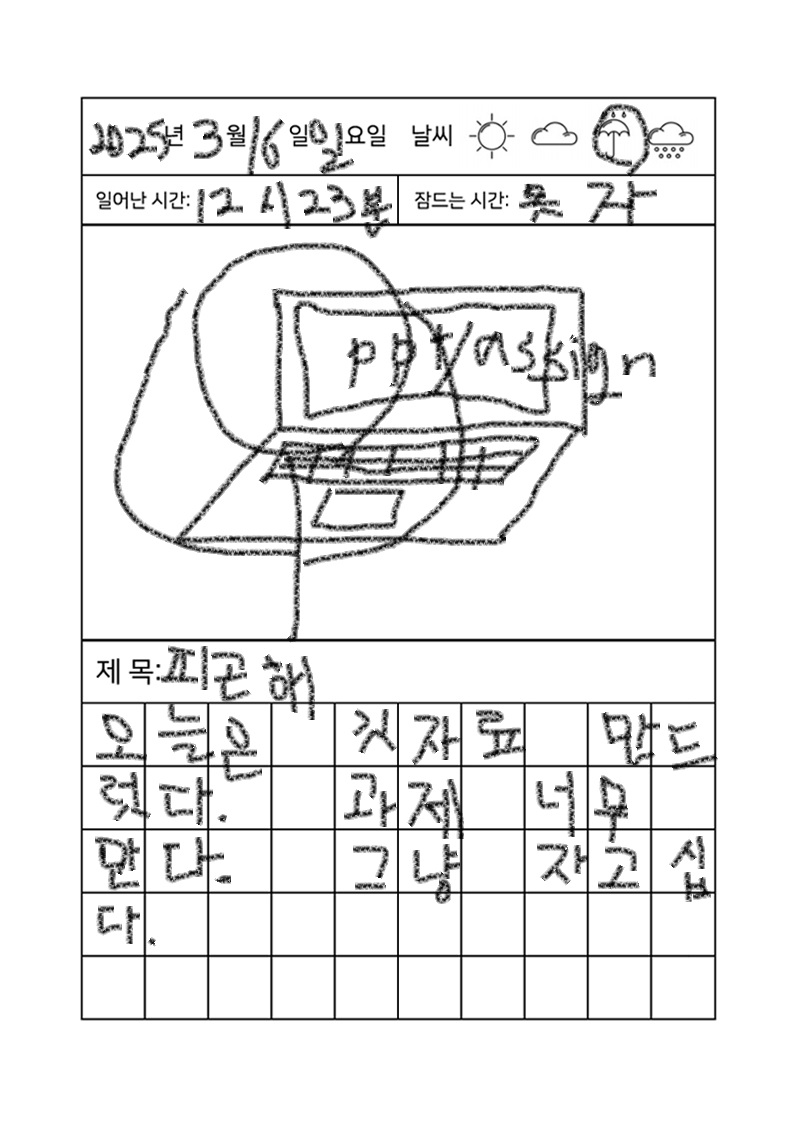 2025년 3월 16일 일요일 날씨
일어난 시간: 12시 23분 잠드는 시간: 못 자
ppt/assign
제 목: 피곤해
오늘은 깃자료 만드
럿다. 과제 너무
만다. 그냥 자고 십
다.